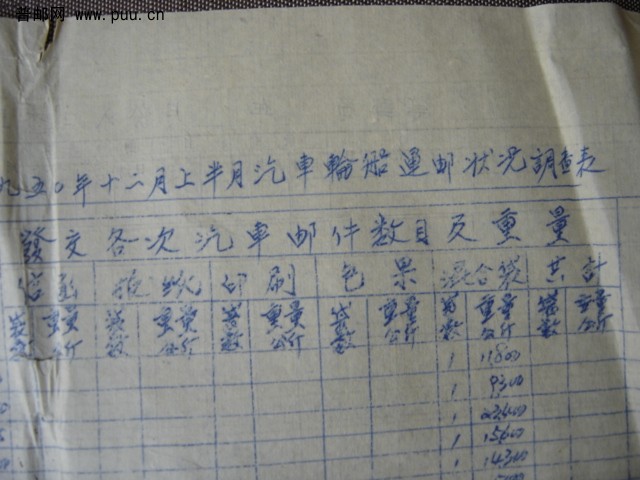 普邮网 www.puu.cn
九五〇年十二月上半月汽車輪船運邮状况調查表
發交各次汽車邮件数目及重量
信函 报纸 印刷 包裹 混合袋 共計
袋数 重量公斤 袋数 重量公斤 袋数 重量公斤 袋数 重量公斤 袋数 重量公斤 袋数 重量公斤
1 11800
1 9300
1 23400
1 15600
1 14300